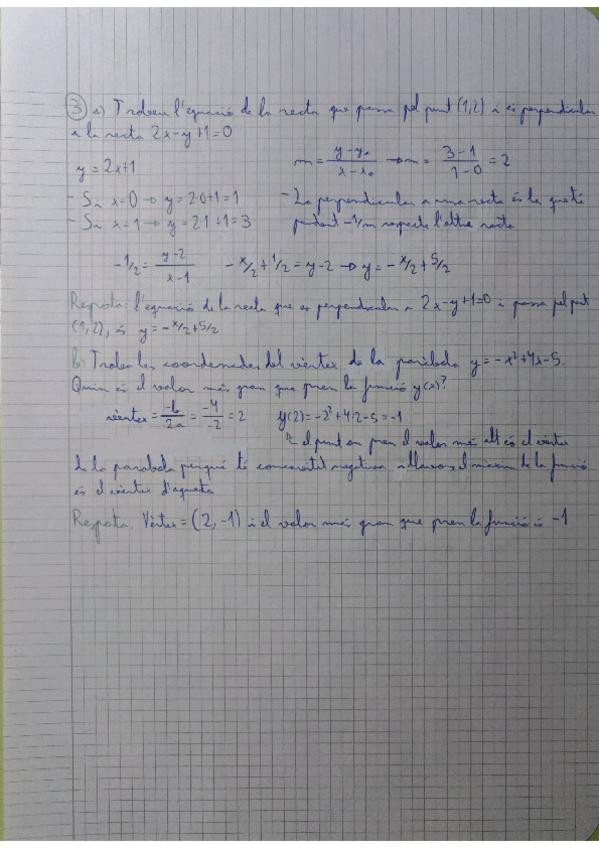 3 a) Trobeu l'equació de la recta que passa pel punt (1,2) i és perpendicular
a la recta 2x-y+1=0
y=2x+1
m = (y-y₀)/(x-x₀) → m = (3-1)/(1-0) = 2
- Si x=0 → y=2·0+1=1
- Si x=1 → y=2·1+1=3
- La perpendicular a una recta és la que té
pendent -1/m respecte l'altre recta
-1/2 = (y-2)/(x-1)   -x/2+1/2=y-2 → y=-x/2+5/2
Resposta: l'equació de la recta que es perpendicular a 2x-y+1=0 i passa pel punt
(1,2), és y=-x/2+5/2
b) Trobeu les coordenades del vèrtex de la paràbola y=-x²+4x-5.
Quin és el valor més gran que pren la funció y(x)?
vèrtex = -b/2a = -4/-2 = 2   y(2)=-2²+4·2-5=-1
↖ el punt on pren el valor més alt és el vèrtex
de la paràbola perquè té concavitat negativa i llavors el màxim de la funció
és el vèrtex d'aquesta
Resposta: Vèrtex=(2,-1) i el valor més gran que pren la funció és -1